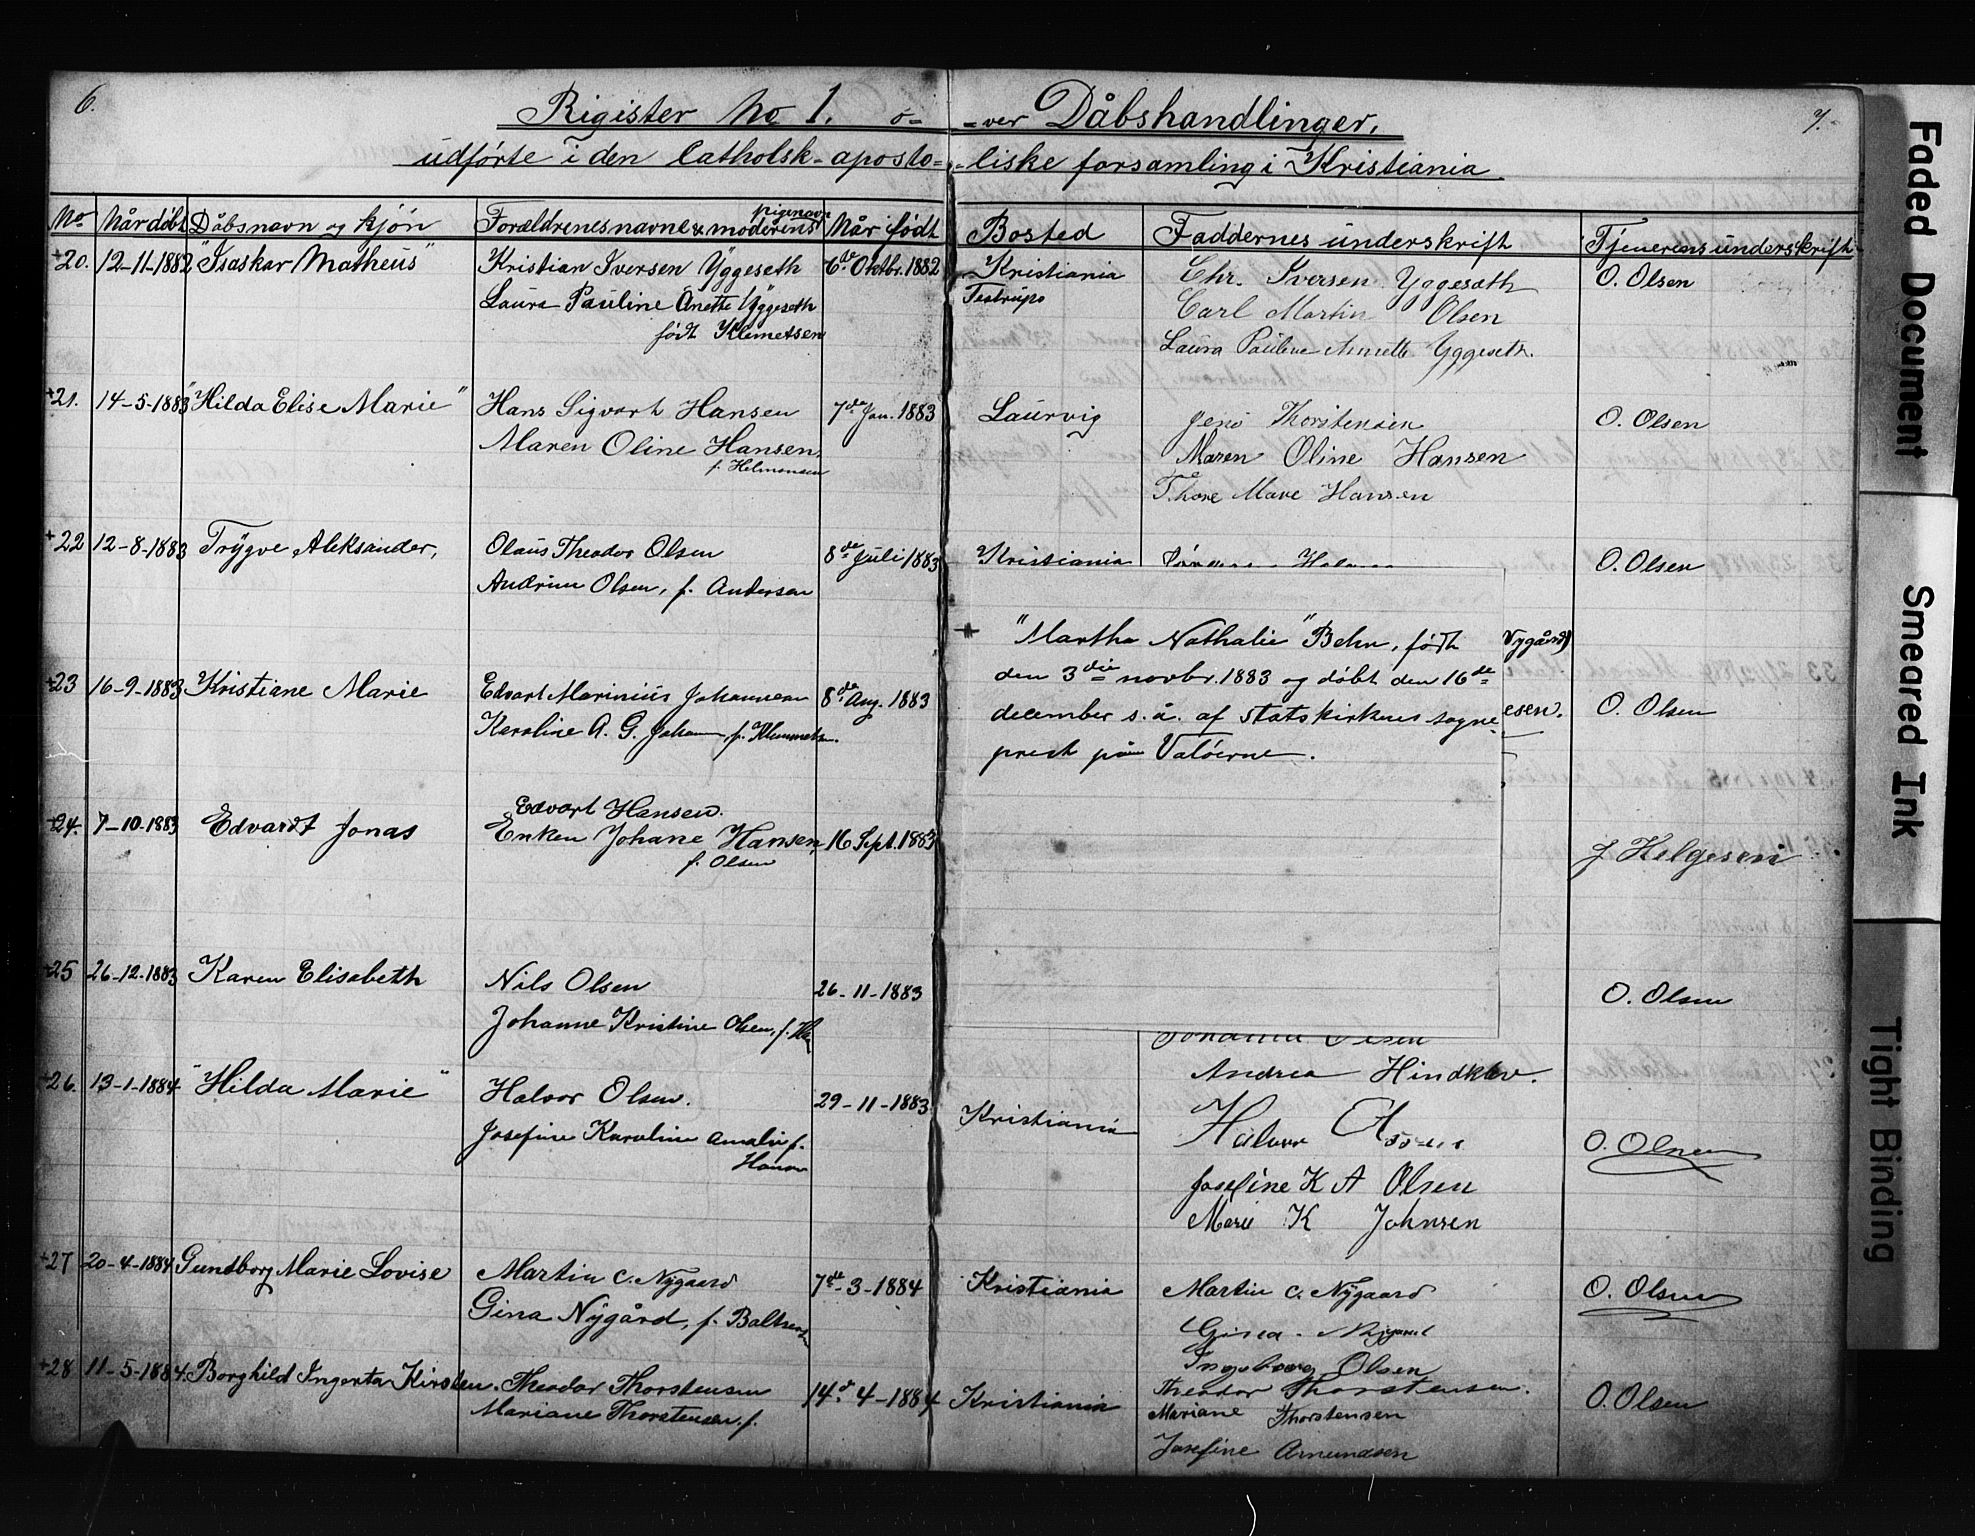 6.
Rigister No 1. o- -ver Dåbshandlinger.
7.
udførte i den Catholsk-aposto- -liske forsamling i Kristiania
No
Når døbt
Dåbsnavn og kjön
Forældrenes navne & moderens pigenavn
Når født
Bosted
Faddernes underskrift
Tjenerens underskrift
+20. 12-11-1882 "Isaskar Matheus"
Kristian Iversen Yggeseth
Laura Pauline Anette Yggeseth
født Klemetsen
6de Oktbr. 1882
Kristiania
Testrups
Chr. Iversen Yggesæth
Carl Martin Olsen
Laura Pauline Annette Yggeseth.
O. Olsen
+21. 14-5-1883 "Hilda Elise Marie"
Hans Sigvart Hansen
Maren Oline Hansen,
f. Helmensen
7de Jan. 1883
Laurvig
Jens Thorstensen
Maren Oline Hansen
Thore Mare Hansen
O. Olsen
+22 12-8-1883 Trygve Aleksander,
Olaus Theodor Olsen
Andrine Olsen, f. Andersen
8de Juli 1883
Kristiania
O. Olsen
+ "Martha Nathalie" Behn, født
den 3die novbr. 1883 og døbt den 16de
december s. å. af statskirkens sogne-
prest på Valøerne.
Nygård)
esen.
+23 16-9-1883 Kristiane Marie
Edvart Marinius Johannesen
Karoline A. G. Johan, f. Klemmetsen.
8de Aug. 1883
O. Olsen
+24. 7-10-1883 Edvardt Jonas
Edvart Hansen.
Enken Johane Hansen,
f. Olsen
16 Sept. 1883
J Helgesen
+25 26-12-1883 Karen Elisabeth
Nils Olsen
Johanne Kristine Olsen, f.
26-11-1883
O. Olsen
Johanna Olsen
Andrea Hindklev.
+26. 13-1-1884 "Hilda Marie"
Halvor Olsen.
Josefine Karoline Amalie f.
Hansen
29-11-1883
Kristiania
Halvor Olsen
Josefine K A Olsen
Marie K Johnsen
O. Olsen
+27 20-4-1884 Gundborg Marie Lovise
Martin C. Nygaard
Gina Nygård, f. Baltsersen
7de-3-1884
Kristiania
Martin C. Nygaard
Gina Nygaard
Ingeborg Olsen
O. Olsen
+28 11-5-1884. Borghild Ingerta Kirsten.
Theodor Thorstensen
Mariane Thorstensen. f.
14d. 4-1884
Kristiania
Theodor Thorstensen.
Mariane Thorstensen
Josefine Amundsen
O. Olsen
Faded Document
Smeared Ink
Tight Binding